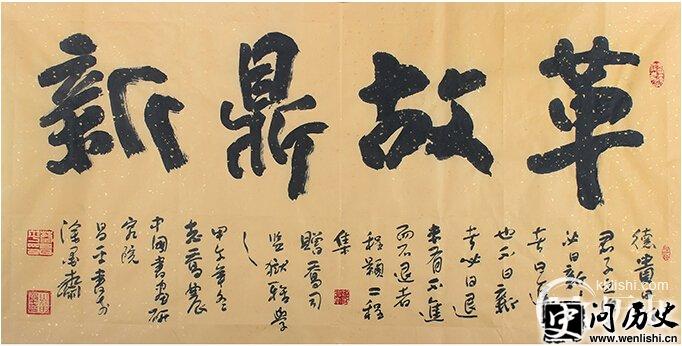 革故鼎新
德貴日
君子
必日新
者日進
也不日新
者必日退
未有不進
而不退者
程題二程
集
贈喬司
監獄
之
甲午年冬
中國書畫研
究院
昌平書於
滌墨齋
kklishi.com
问历史
www.wenlishi.cn